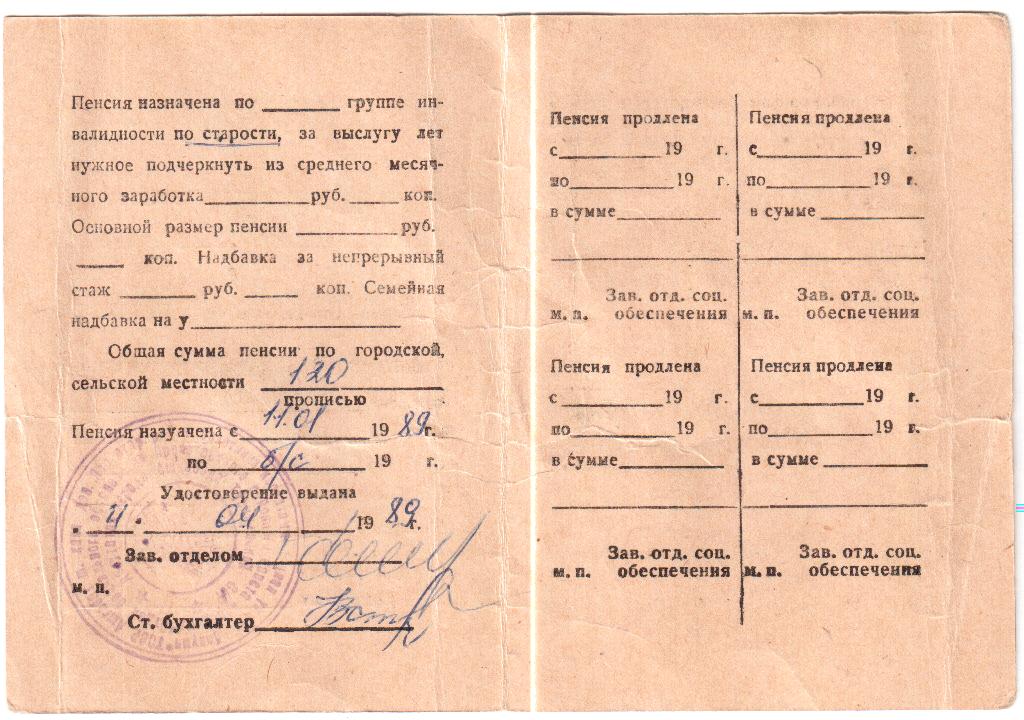 Пенсия назначена по ______ группе ин-
валидности по старости, за выслугу лет
нужное подчеркнуть из среднего месяч-
ного заработка ______ руб. ____ коп.
Основной размер пенсии ______ руб.
____ коп. Надбавка за непрерывный
стаж ______ руб. ____ коп. Семейная
надбавка на у ______
Общая сумма пенсии по городской,
сельской местности 120
прописью
Пенсия назуачена с 11.01 1989г.
по б/с 19 г.
Удостоверение выдана
" 11 " 04 1989г.
Зав. отделом
м. п.
Ст. бухгалтер
Пенсия продлена
с ______ 19 г.
по ______ 19 г.
в сумме ______
Зав. отд. соц.
м. п. обеспечения
Пенсия продлена
с ______ 19 г.
по ______ 19 г.
в сумме ______
Зав. отд. соц.
м. п. обеспечения
Пенсия продлена
с ______ 19 г.
по ______ 19 г.
в сумме ______
Зав. отд. соц.
м. п. обеспечения
Пенсия продлена
с ______ 19 г.
по ______ 19 г.
в сумме ______
Зав. отд. соц.
м. п. обеспечения